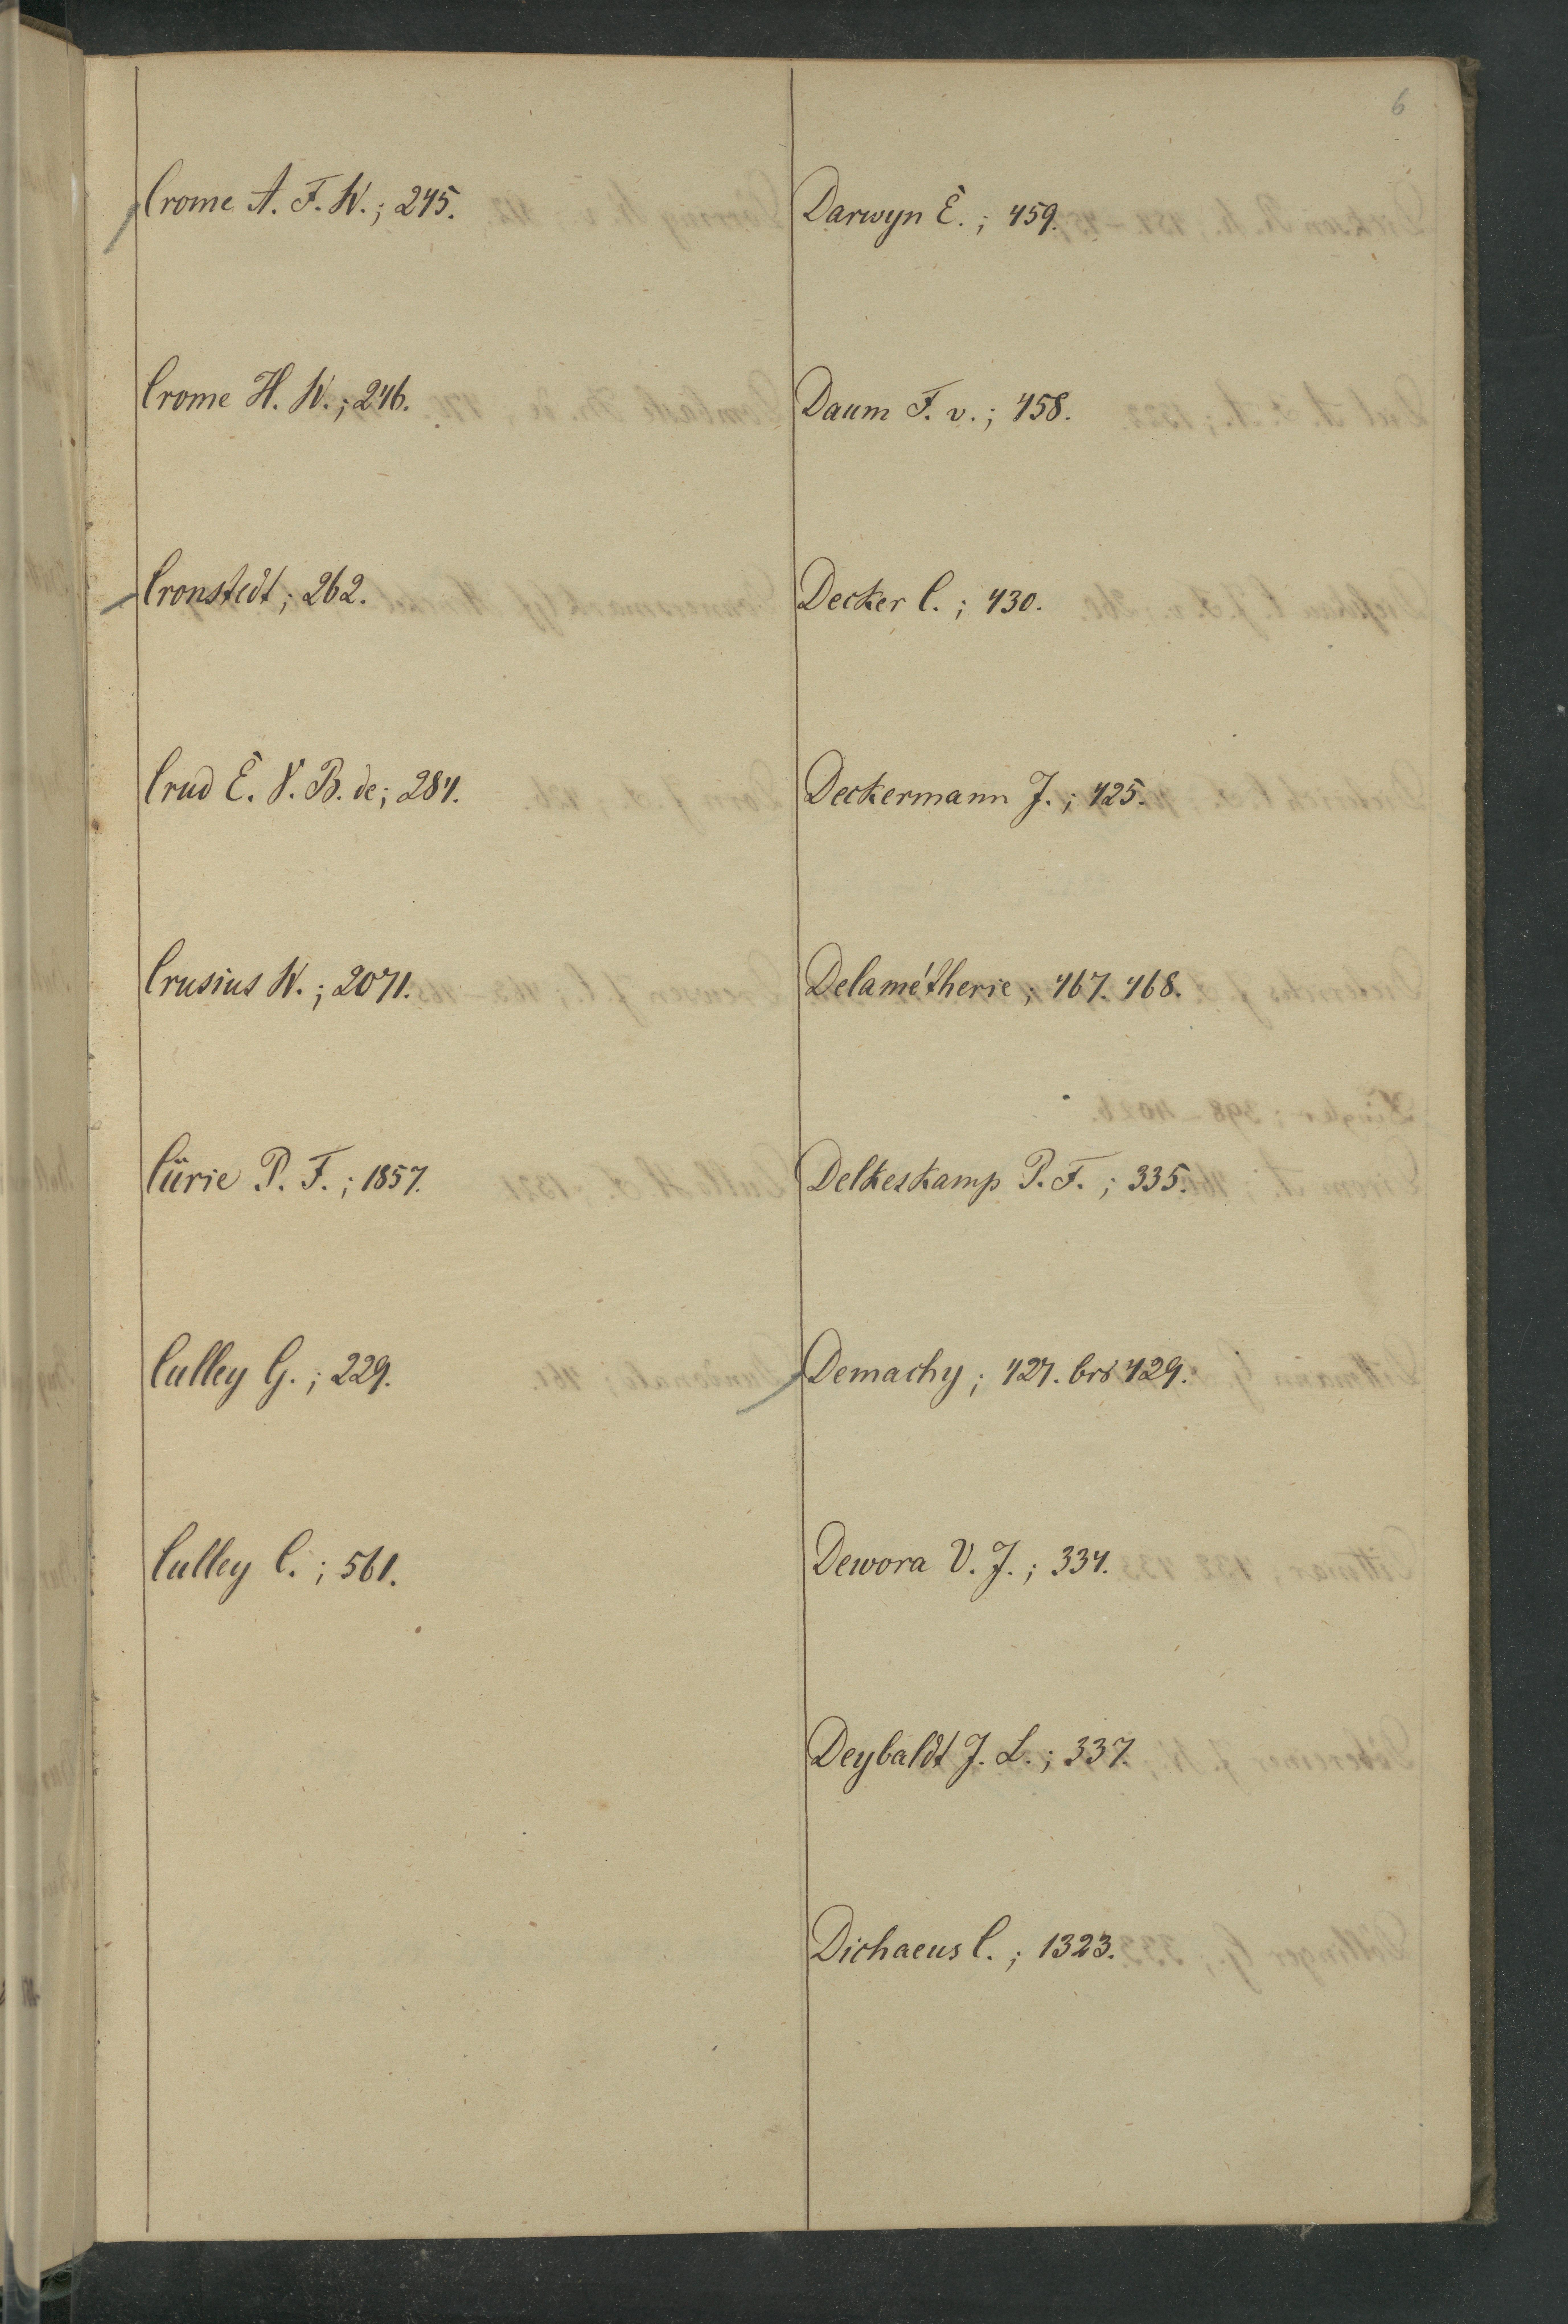 6
Crome A. F. W.; 245.
Crome H. W.; 246.
Cronstedt; 262.
Crud E. V. B. de; 284.
Crusius W.; 2071.
Cürie P. F.; 1857.
Culley G.; 229.
Culley C.; 561.
Darwyn E.; 459.
Daum F. v.; 458.
Decker C.; 430.
Deckermann J.; 425.
Delamétherie; 467. 468.
Delkeskamp P. F.; 335.
Demachy; 427. bis 429.
Dewora V. J.; 334.
Deybaldt J. L.; 337.
Dichaeus C.; 1323.